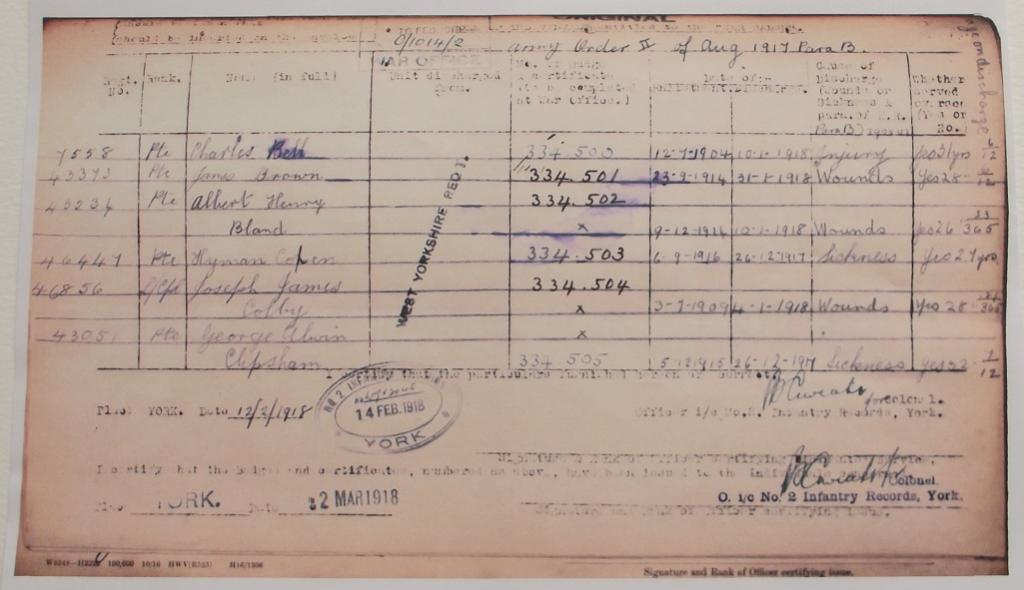 ORIGINAL
(should be inserted on the
0/1014/2 Army Order II of Aug 1917 Para B.
WAR OFFICE
Regt. No. Rank. Name (in full) Unit discharged from. No. of Badge & certificate (to be completed at War Office.) Date of:- Cause of Discharge (Wounds or Sickness & para. of K.R. Para B) Whether served overseas (Yes or No.) age on discharge
7558 Pte Charles Bell 334.500 12-7-1904 10-1-1918 Injury Yes 31 yrs 6/12
43373 Pte James Brown 334.501 23-9-1914 31-1-1918 Wounds Yes 28
43234 Pte Albert Henry 334.502
Bland x 9-12-1911 10-1-1918 Wounds Yes 26 33/365
46447 Pte Hyman Copen 334.503 6-9-1916 26-12-1917 Sickness Yes 27 yrs
46856 Joseph James 334.504
Colby x 3-7-1909 4-1-1918 Wounds Yes 28
43051 Pte George Alwin x
Clipsham 334 505 5-12-1915 26-12-1917 Sickness Yes 22 1/12
WEST YORKSHIRE REGT.
I certify that the particulars furnished hereon are correct.
Place YORK. Date 12/2/1918
Colonel.
Officer i/c No.2. Infantry Records, York.
NO. 2 INFANTRY
14 FEB. 1918
YORK
I certify that the Badges and certificates, numbered as above, have been issued to the individuals
Colonel.
O. i/c No. 2 Infantry Records, York.
Place YORK. Date 2 MAR 1918
100,000 10/16 HWV(R323) H16/1306
Signature and Rank of Officer certifying issue.